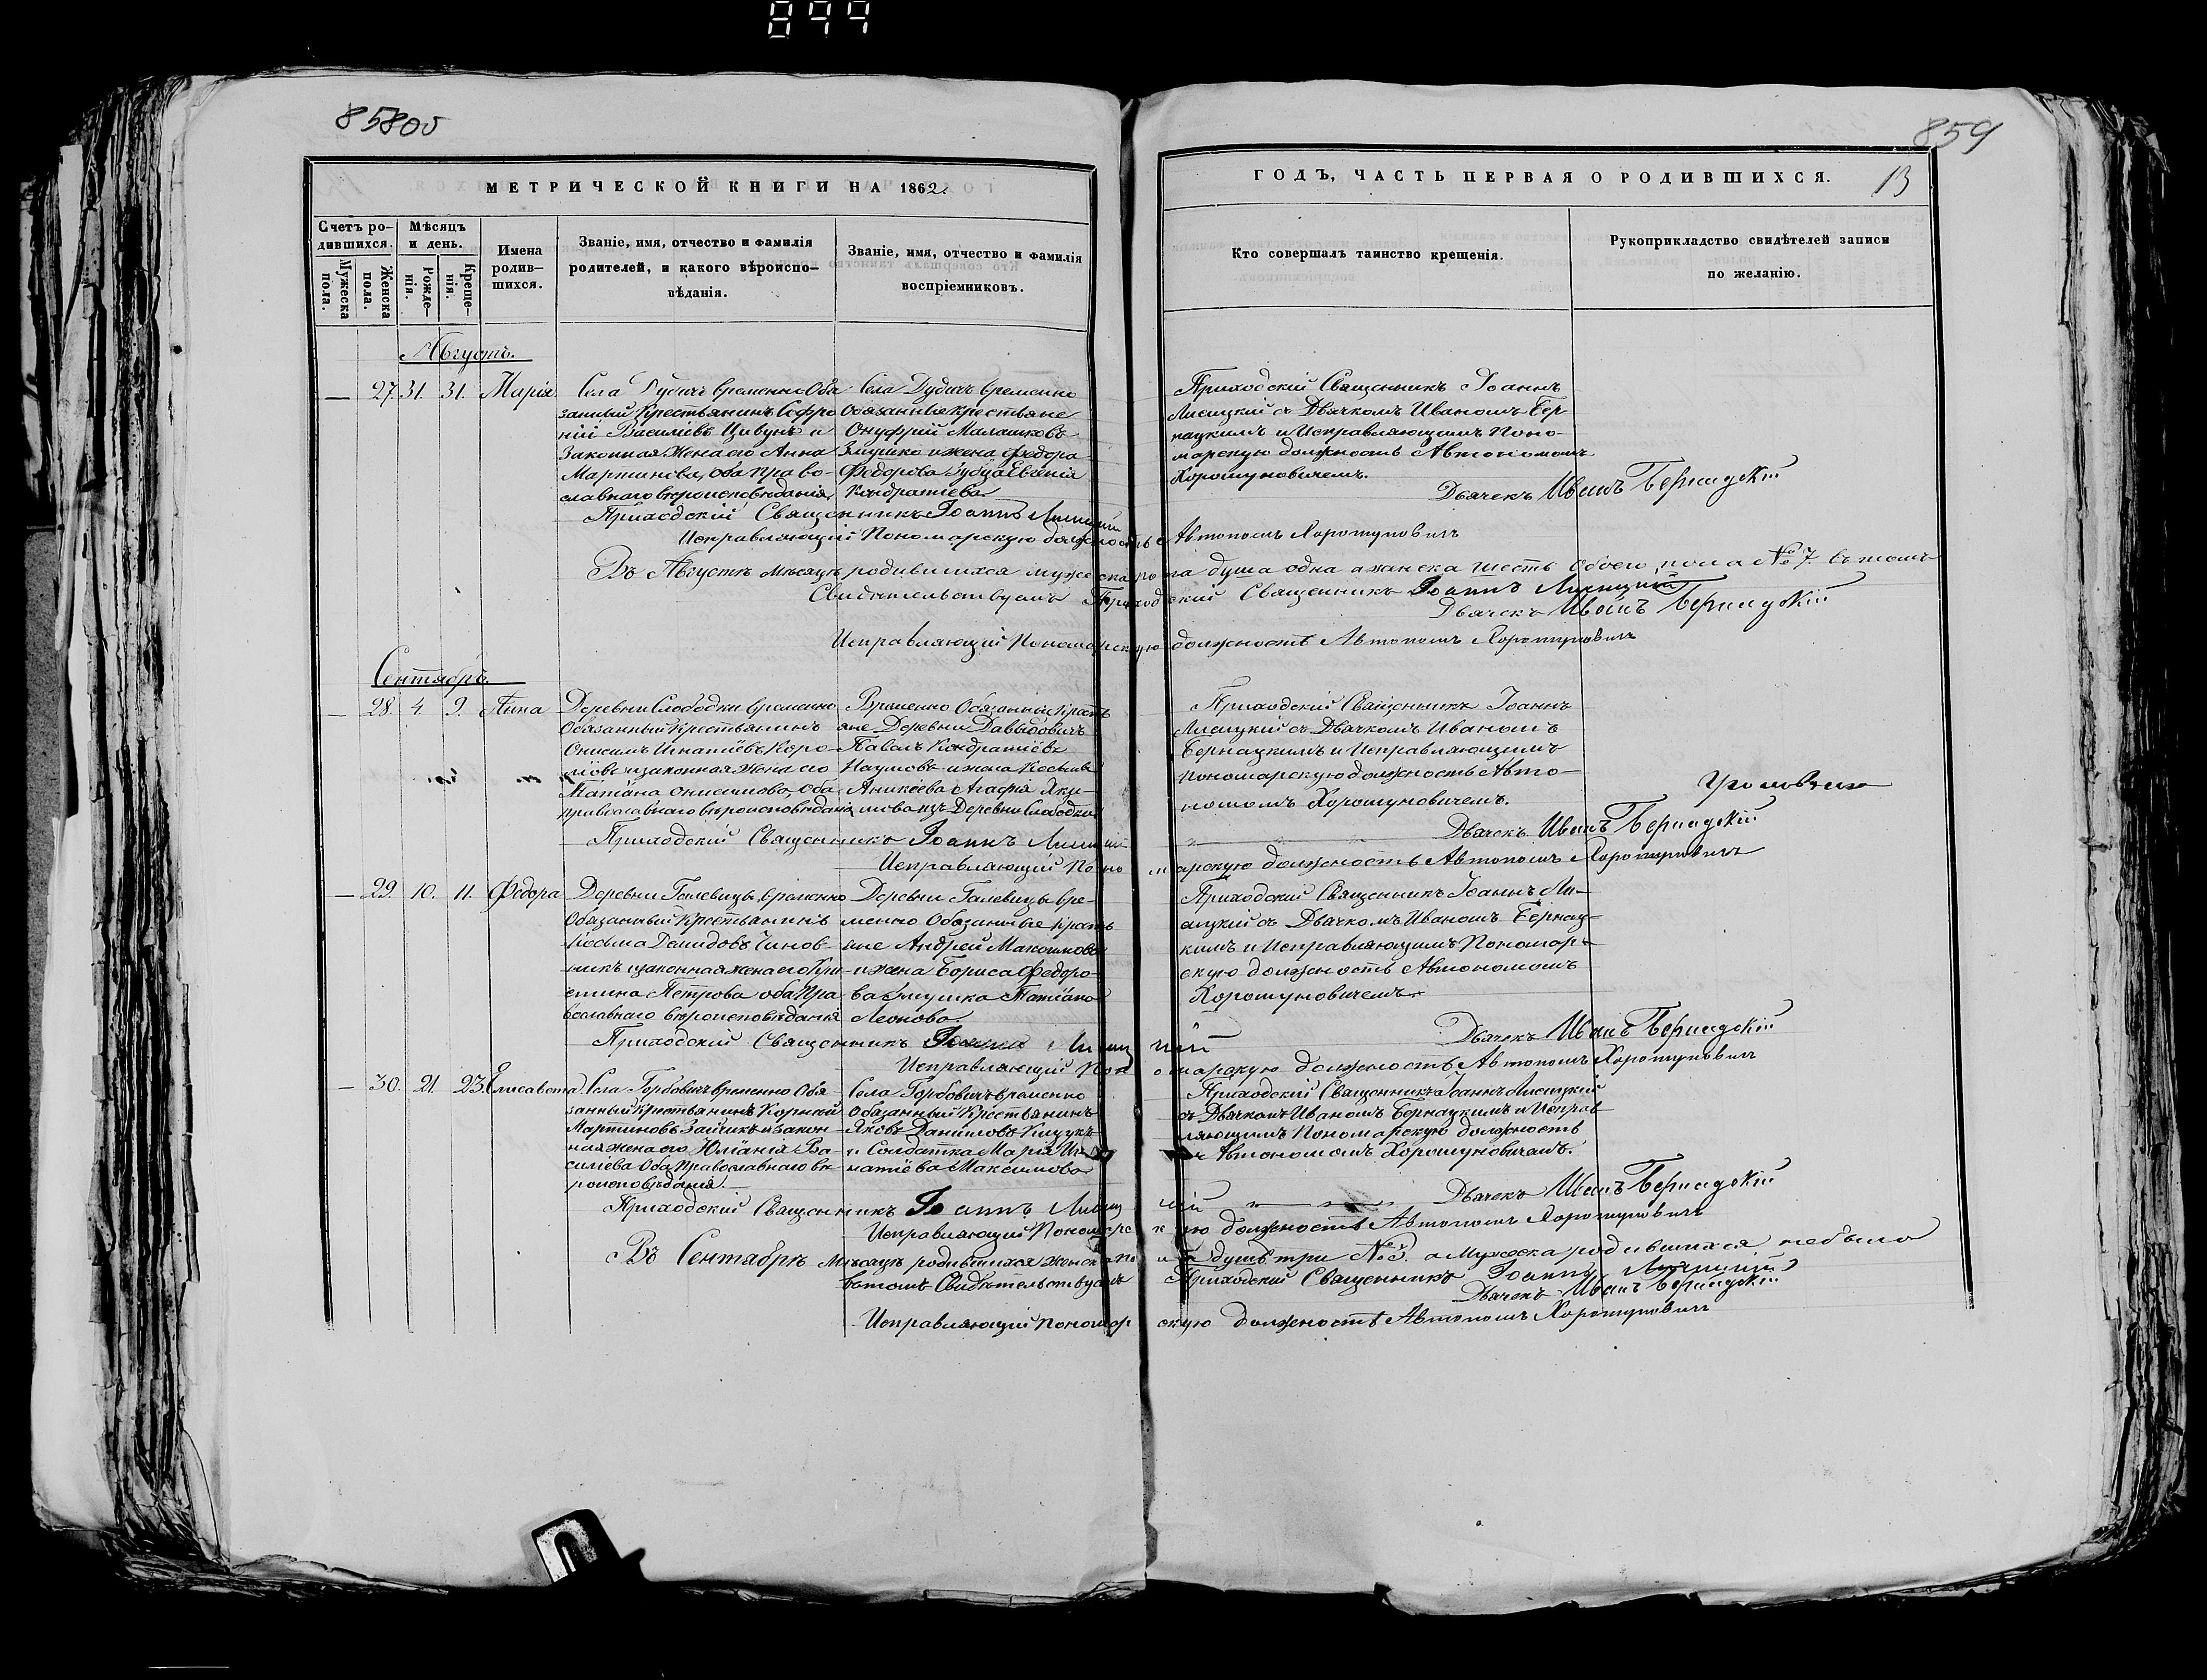 899
858об
859
МЕТРИЧЕСКОЙ КНИГИ НА 1862
ГОДЪ, ЧАСТЬ ПЕРВАЯ О РОДИВШИХСЯ.
13
Счетъ ро-
дившихся.
Мужеска
пола.
Женска
пола.
Мѣсяцъ
и день.
Рожде-
нія.
Креще-
нія.
Имена
родив-
шихся.
Званіе, имя, отчество и фамилія
родителей, и какого вѣроиспо-
вѣданія.
Званіе, имя, отчество и фамилія
воспріемниковъ.
Кто совершалъ таинство крещенія.
Рукоприкладство свидѣтелей записи
по желанію.
Августъ.
— 27. 31. 31. Марія.
Села Дудичъ временно Обя
занный Крестьянинъ Софро
ній Василіевъ Цивунъ и
Законная Жена его Анна
Мартинова, оба Право-
славнаго вѣроисповѣданія
Села Дудичъ временно
Обязанные крестьяне
Онуфрій Малашковъ
Змушко и жена Федора
Федорова Зубца Евгенія
Кондратіева
Приходскій Священникъ Іоаннъ
Лисицкій съ Дьячкомъ Иваномъ Бер-
нацкимъ и Исправляющимъ Поно-
марскую должность Автономомъ
Хорошуновичемъ.
Дьячекъ Иванъ Бернадскій
Приходскій Священникъ Іоаннъ Лисицкій
Исправляющій Пономарскую должность Автономъ Хорошуновичъ
Въ Августѣ мѣсяцѣ родившихся мужеска рода душа одна а женска шесть обоего пола № 7 въ томъ
Свидѣтельствуемъ Приходскій Священникъ Іоаннъ Лисицкій
Дьячекъ Иванъ Бернадскій
Исправляющій Пономарскую должность Автономъ Хорошуновичъ
Сентябрь.
— 28. 4. 9. Анна
Деревни Слободки временно
Обязанный Крестьянинъ
Онисимъ Игнатіевъ Коро-
лёвъ и законная Жена его
Татіана Онисимова, оба
православнаго вѣроисповѣданія
Временно Обязанные Кресть
яне Деревни Давыдовичъ
Павелъ Кондратіевъ
Наумовъ и жена Космы
Аникеева Агафія Яки-
мова изъ Деревни Слободки
Приходскій Священникъ Іоаннъ
Лисицкій съ Дьячкомъ Иваномъ
Бернацкимъ и Исправляющимъ
пономарскую должность Авто-
номомъ Хорошуновичемъ.
Дьячекъ Иванъ Бернадскій
Приходскій Священникъ Іоаннъ Лисицкій
Исправляющій Пономарскую должность Автономъ Хорошуновичъ
— 29. 10. 11. Федора
Деревни Галевицы временно
Обязанный Крестьянинъ
Косьма Демидовъ Чинов-
никъ и законная жена его Іус-
стина Петрова оба Пра
вославнаго вѣроисповѣданія
Деревни Галевицы вре-
менно Обязанные Кресть
яне Андрей Максимовъ
и жена Бориса Федоро-
ва Змушка Татіана
Леонова.
Приходскій Священникъ Іоаннъ Ли-
сицкій съ Дьячкомъ Иваномъ Бернац-
кимъ и Исправляющимъ Пономар-
скую должность Автономомъ
Хорошуновичемъ.
Дьячекъ Иванъ Бернадскій
Приходскій Священникъ Іоаннъ Лисицкій
Исправляющій Пономарскую должность Автономъ Хорошуновичъ
— 30. 21. 23. Елисавета.
Села Горбовичъ временно Обя
занный Крестьянинъ Корнилій
Мартиновъ Зайчикъ и закон-
ная жена его Юліанія Ва-
силіева Оба Православнаго вѣ
роисповѣданія.
Села Горбовичъ временно
Обязанный Крестьянинъ
Яковъ Даниловъ
и Солдатка Марія Иг-
натіева Максимова
Приходскій Священникъ Іоаннъ Лисицкій
съ Дьячкомъ Иваномъ Бернацкимъ и Исправ-
ляющимъ Пономарскую должность
Автономомъ Хорошуновичемъ.
Дьячекъ Иванъ Бернадскій
Приходскій Священникъ Іоаннъ Лисицкій
Исправляющій Пономарскую должность Автономъ Хорошуновичъ
Въ Сентябрѣ мѣсяцѣ родившихся женска пола душъ три № 3. а Мужеска родившихся не было
въ томъ Свидѣтельствуемъ Приходскій Священникъ Іоаннъ Лисицкій
Дьячекъ Иванъ Бернадскій
Исправляющій Пономарскую должность Автономъ Хорошуновичъ